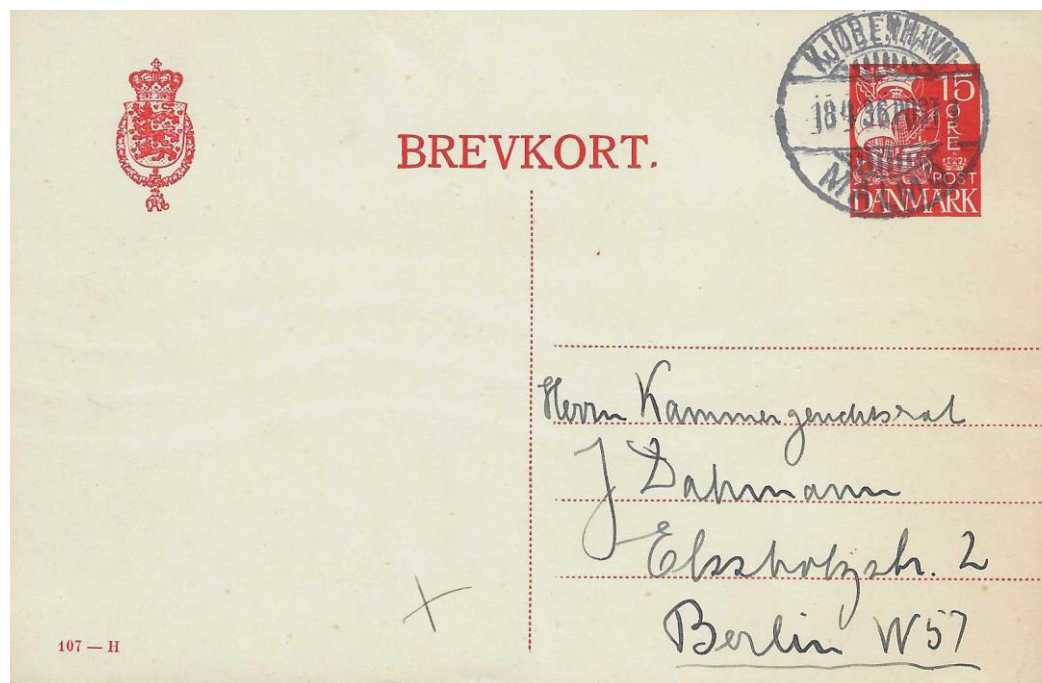 BREVKORT.
KJØBENHAVN
18 4 36 POST 9
15
ØRE
POST
DANMARK
Herrn Kammergerichtsrat
J Dahmann
Elssholzstr. 2
Berlin W57
107 — H